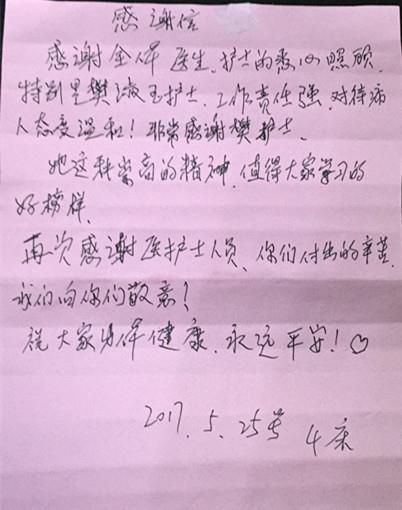 感谢信
感谢全体医生、护士的悉心照顾,
特别是樊淑玉护士、工作责任强、对待病
人态度温和!非常感谢樊护士、
她这种崇高的精神、值得大家学习的
好榜样、
再次感谢医护士人员、你们付出的辛苦、
我们向你们敬意!
祝大家身体健康、永远平安!♡
2017.5.25号 4床